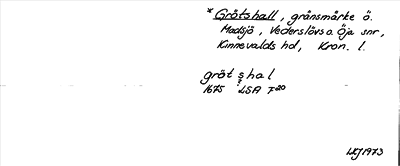 * Grötshall, gränsmärke ö.
Madsjö, Vederslövs o. Öja snr,
Kinnevalds hd, Kron. l.
gröt shal
1675 LSA F20
LKJ 1973